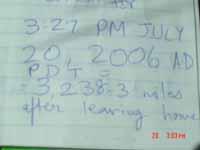 3:27 PM JULY
20, 2006 AD
PDT =
3,238.3 miles
after leaving home